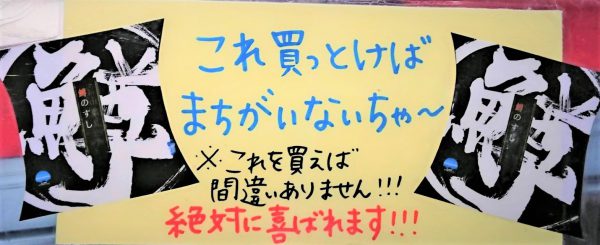 鱒
鱒のすし
これ買っとけば
まちがいないちゃ〜
※これを買えば
間違いありません!!!
絶対に喜ばれます!!!
鱒
鱒のすし